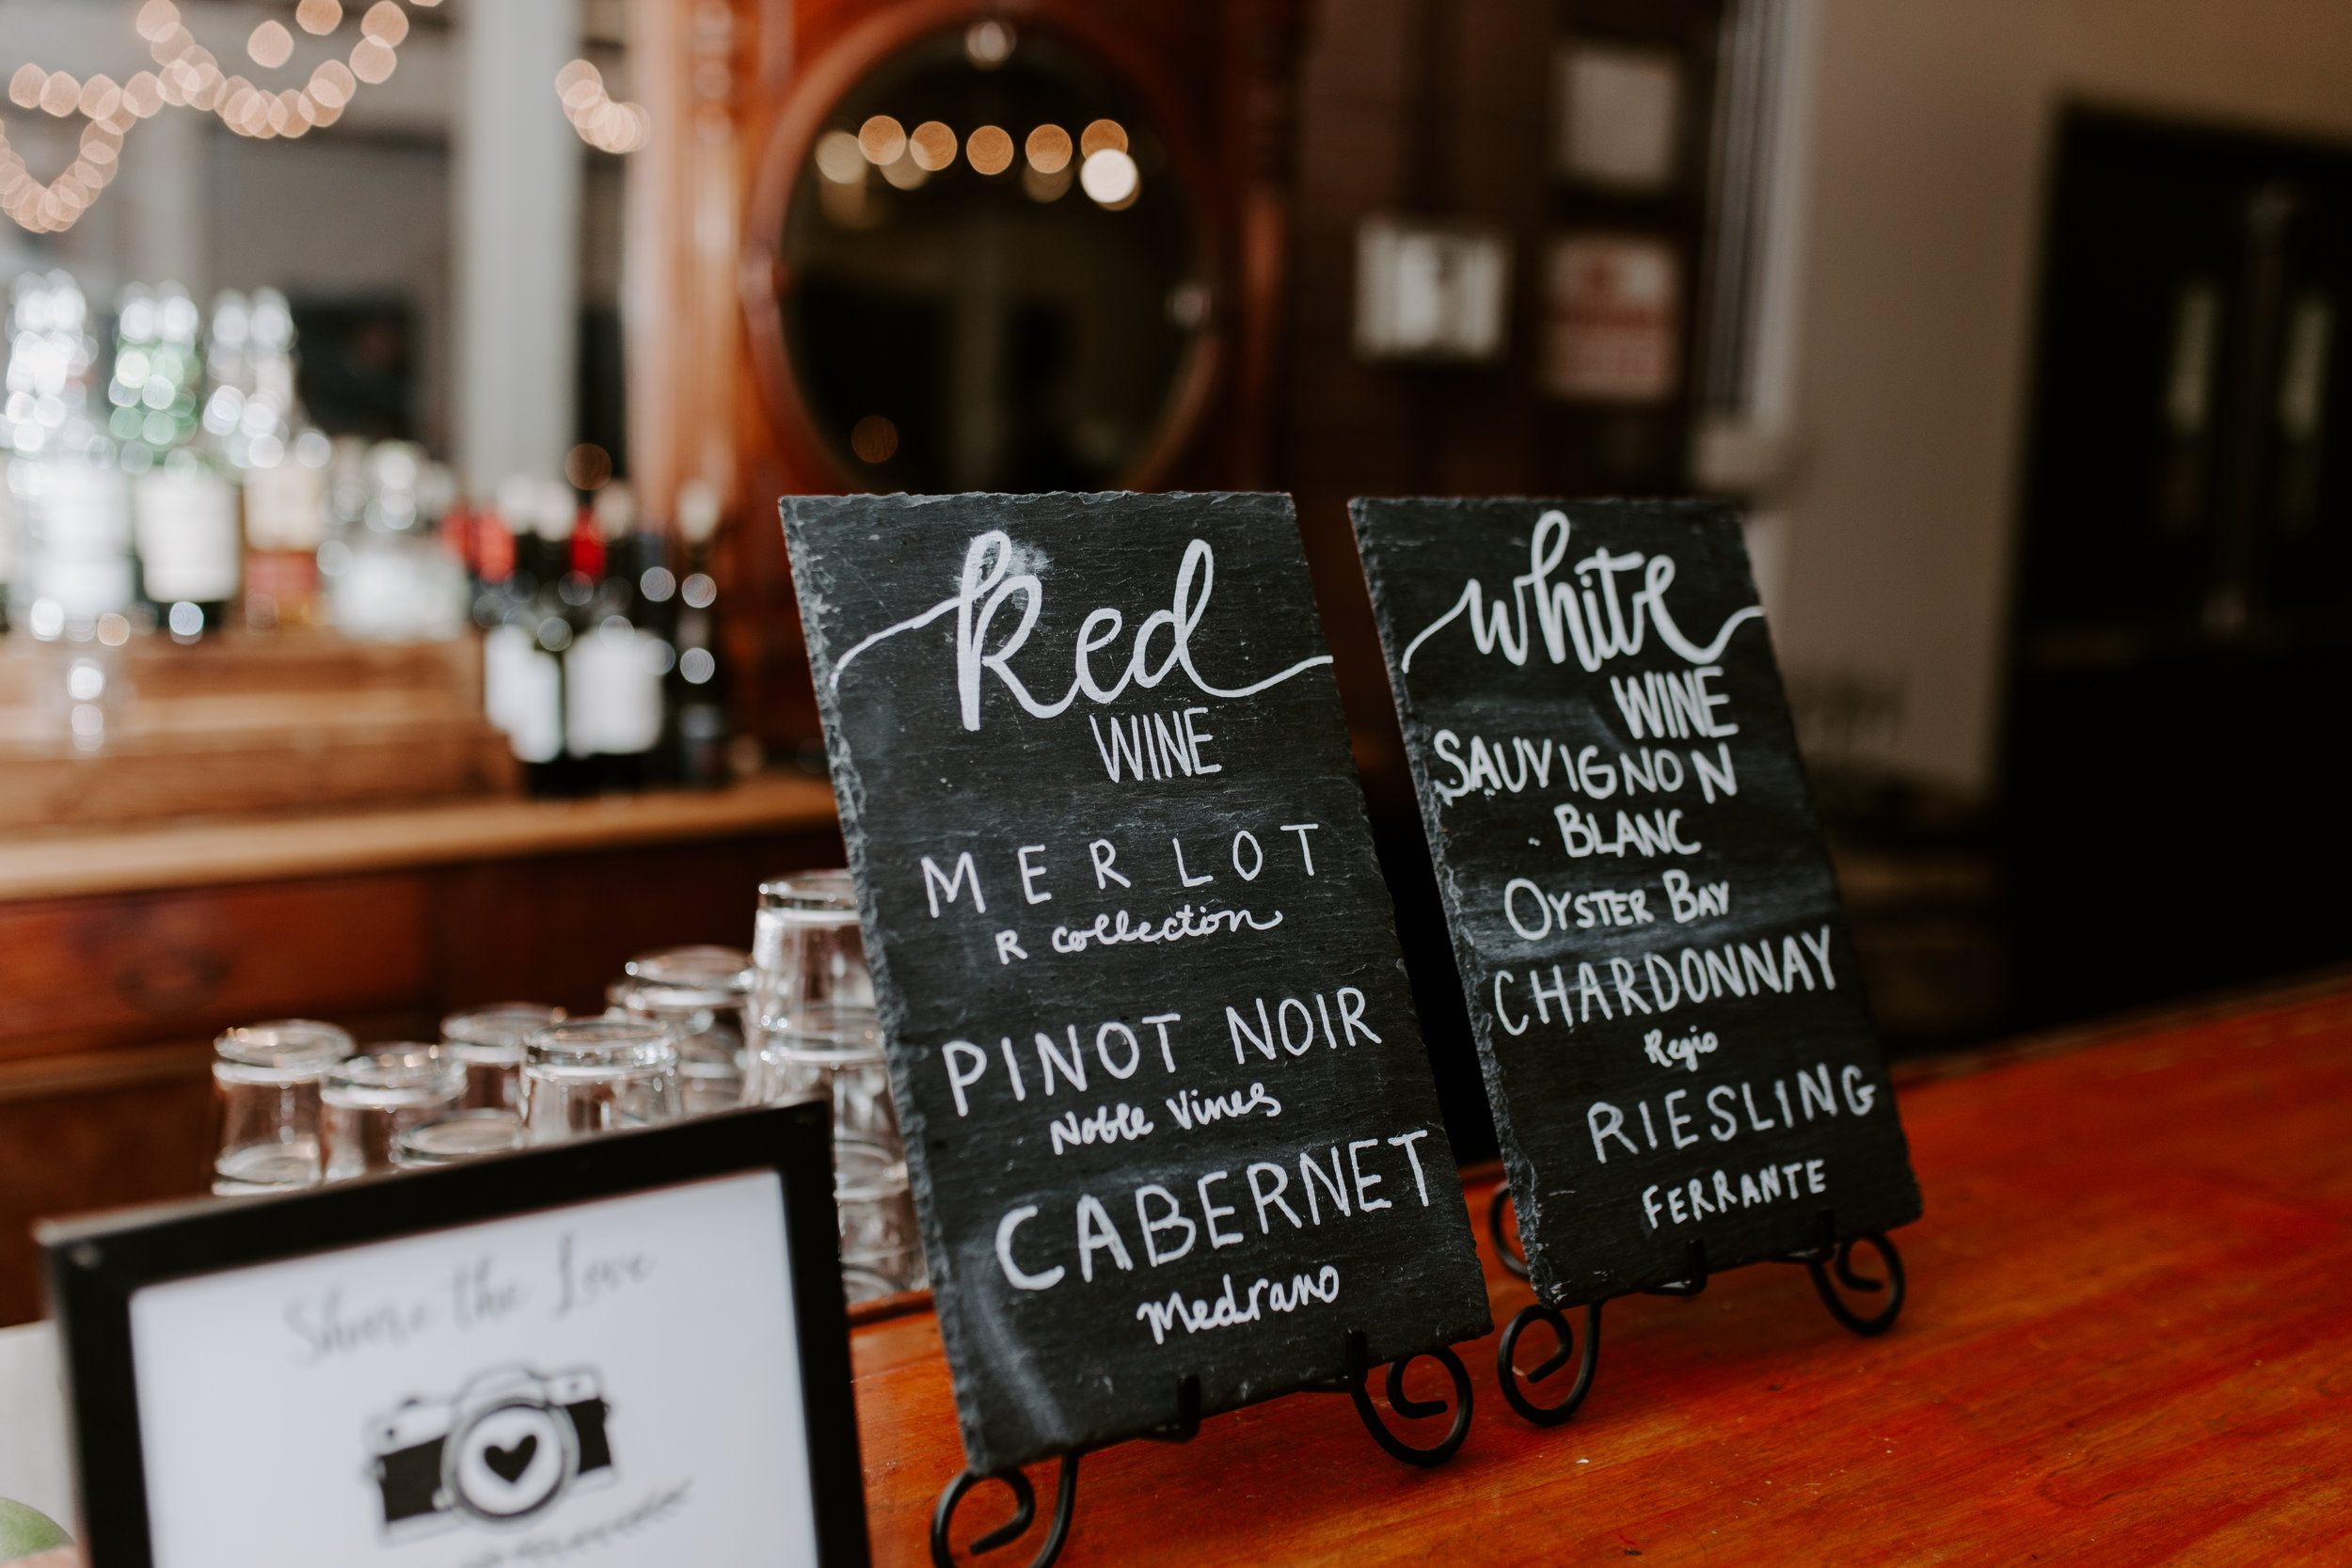 Red
WINE
MERLOT
R collection
PINOT NOIR
Noble Vines
CABERNET
Medrano
white
WINE
SAUVIGNON
BLANC
OYSTER BAY
CHARDONNAY
Regio
RIESLING
FERRANTE
Share the Love